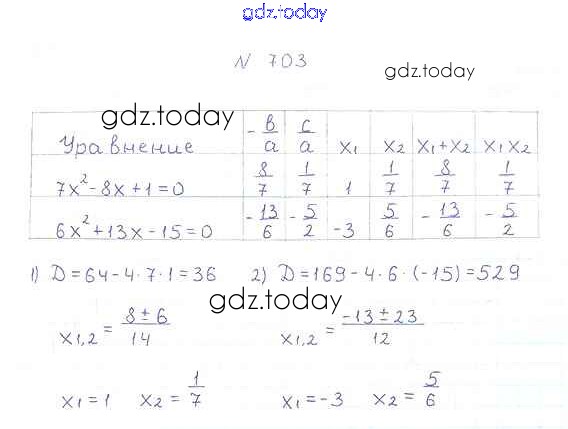 gdz.today
N 703
gdz.today
gdz.today
Уравнение | -в/a | c/a | x₁ | x₂ | x₁+x₂ | x₁x₂
7x²-8x+1=0 | 8/7 | 1/7 | 1 | 1/7 | 8/7 | 1/7
6x²+13x-15=0 | -13/6 | -5/2 | -3 | 5/6 | -13/6 | -5/2
1) D=64-4·7·1=36 2) D=169-4·6·(-15)=529
gdz.today
x₁,₂ = (8±6)/14 x₁,₂ = (-13±23)/12
x₁=1 x₂=1/7 x₁=-3 x₂=5/6